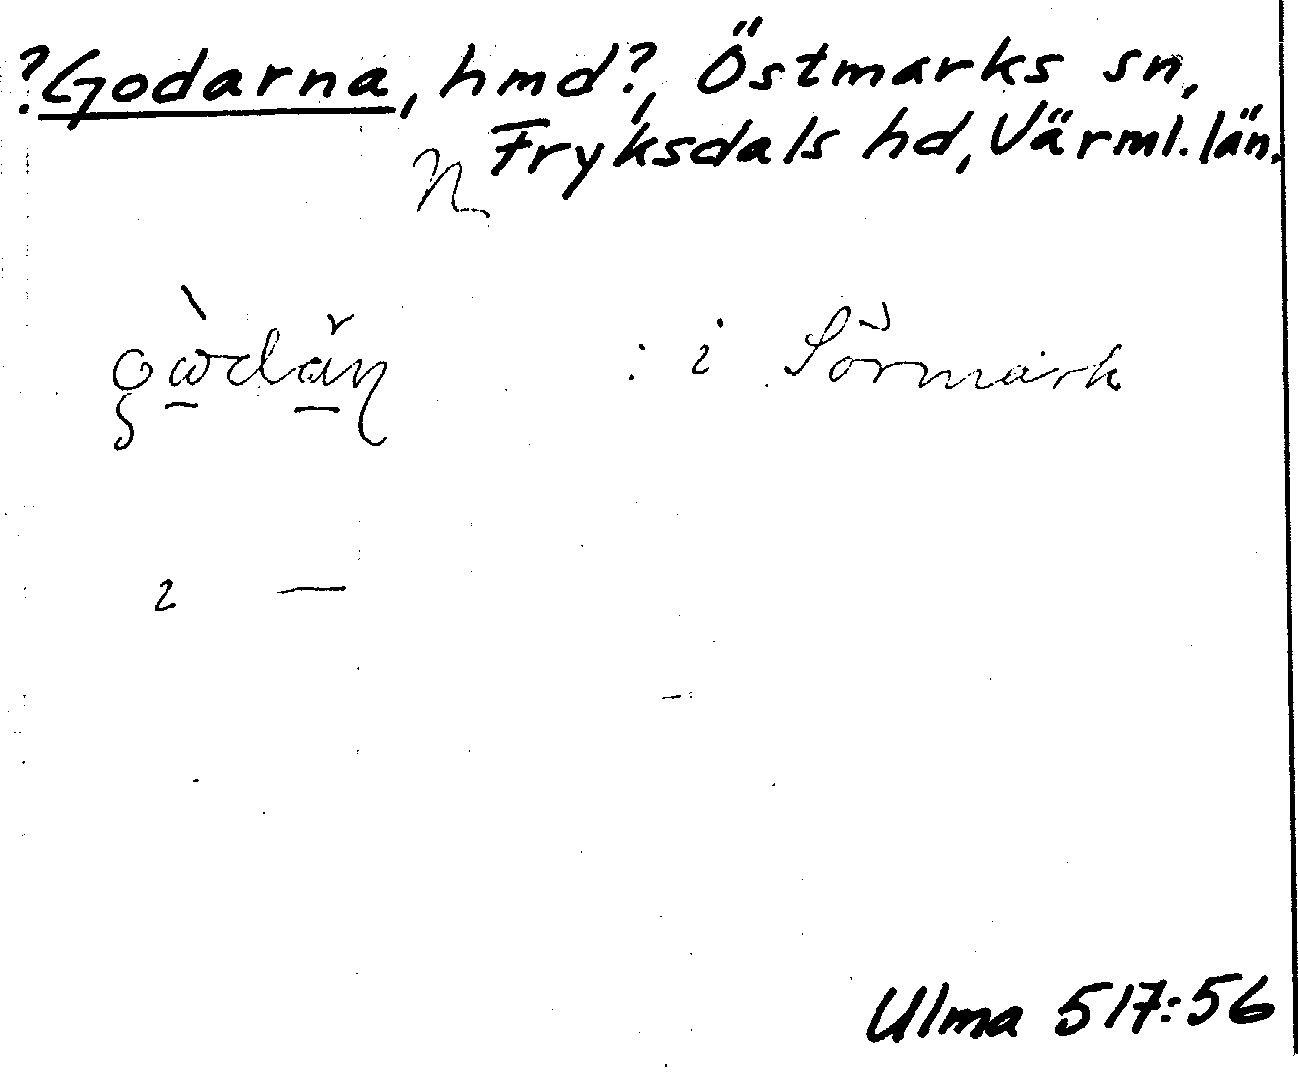 ?Godarna, hmd?, Östmarks sn,
N Fryksdals hd, Värml. län.
: i Sörmark
ɩ —
Ulma 517:56